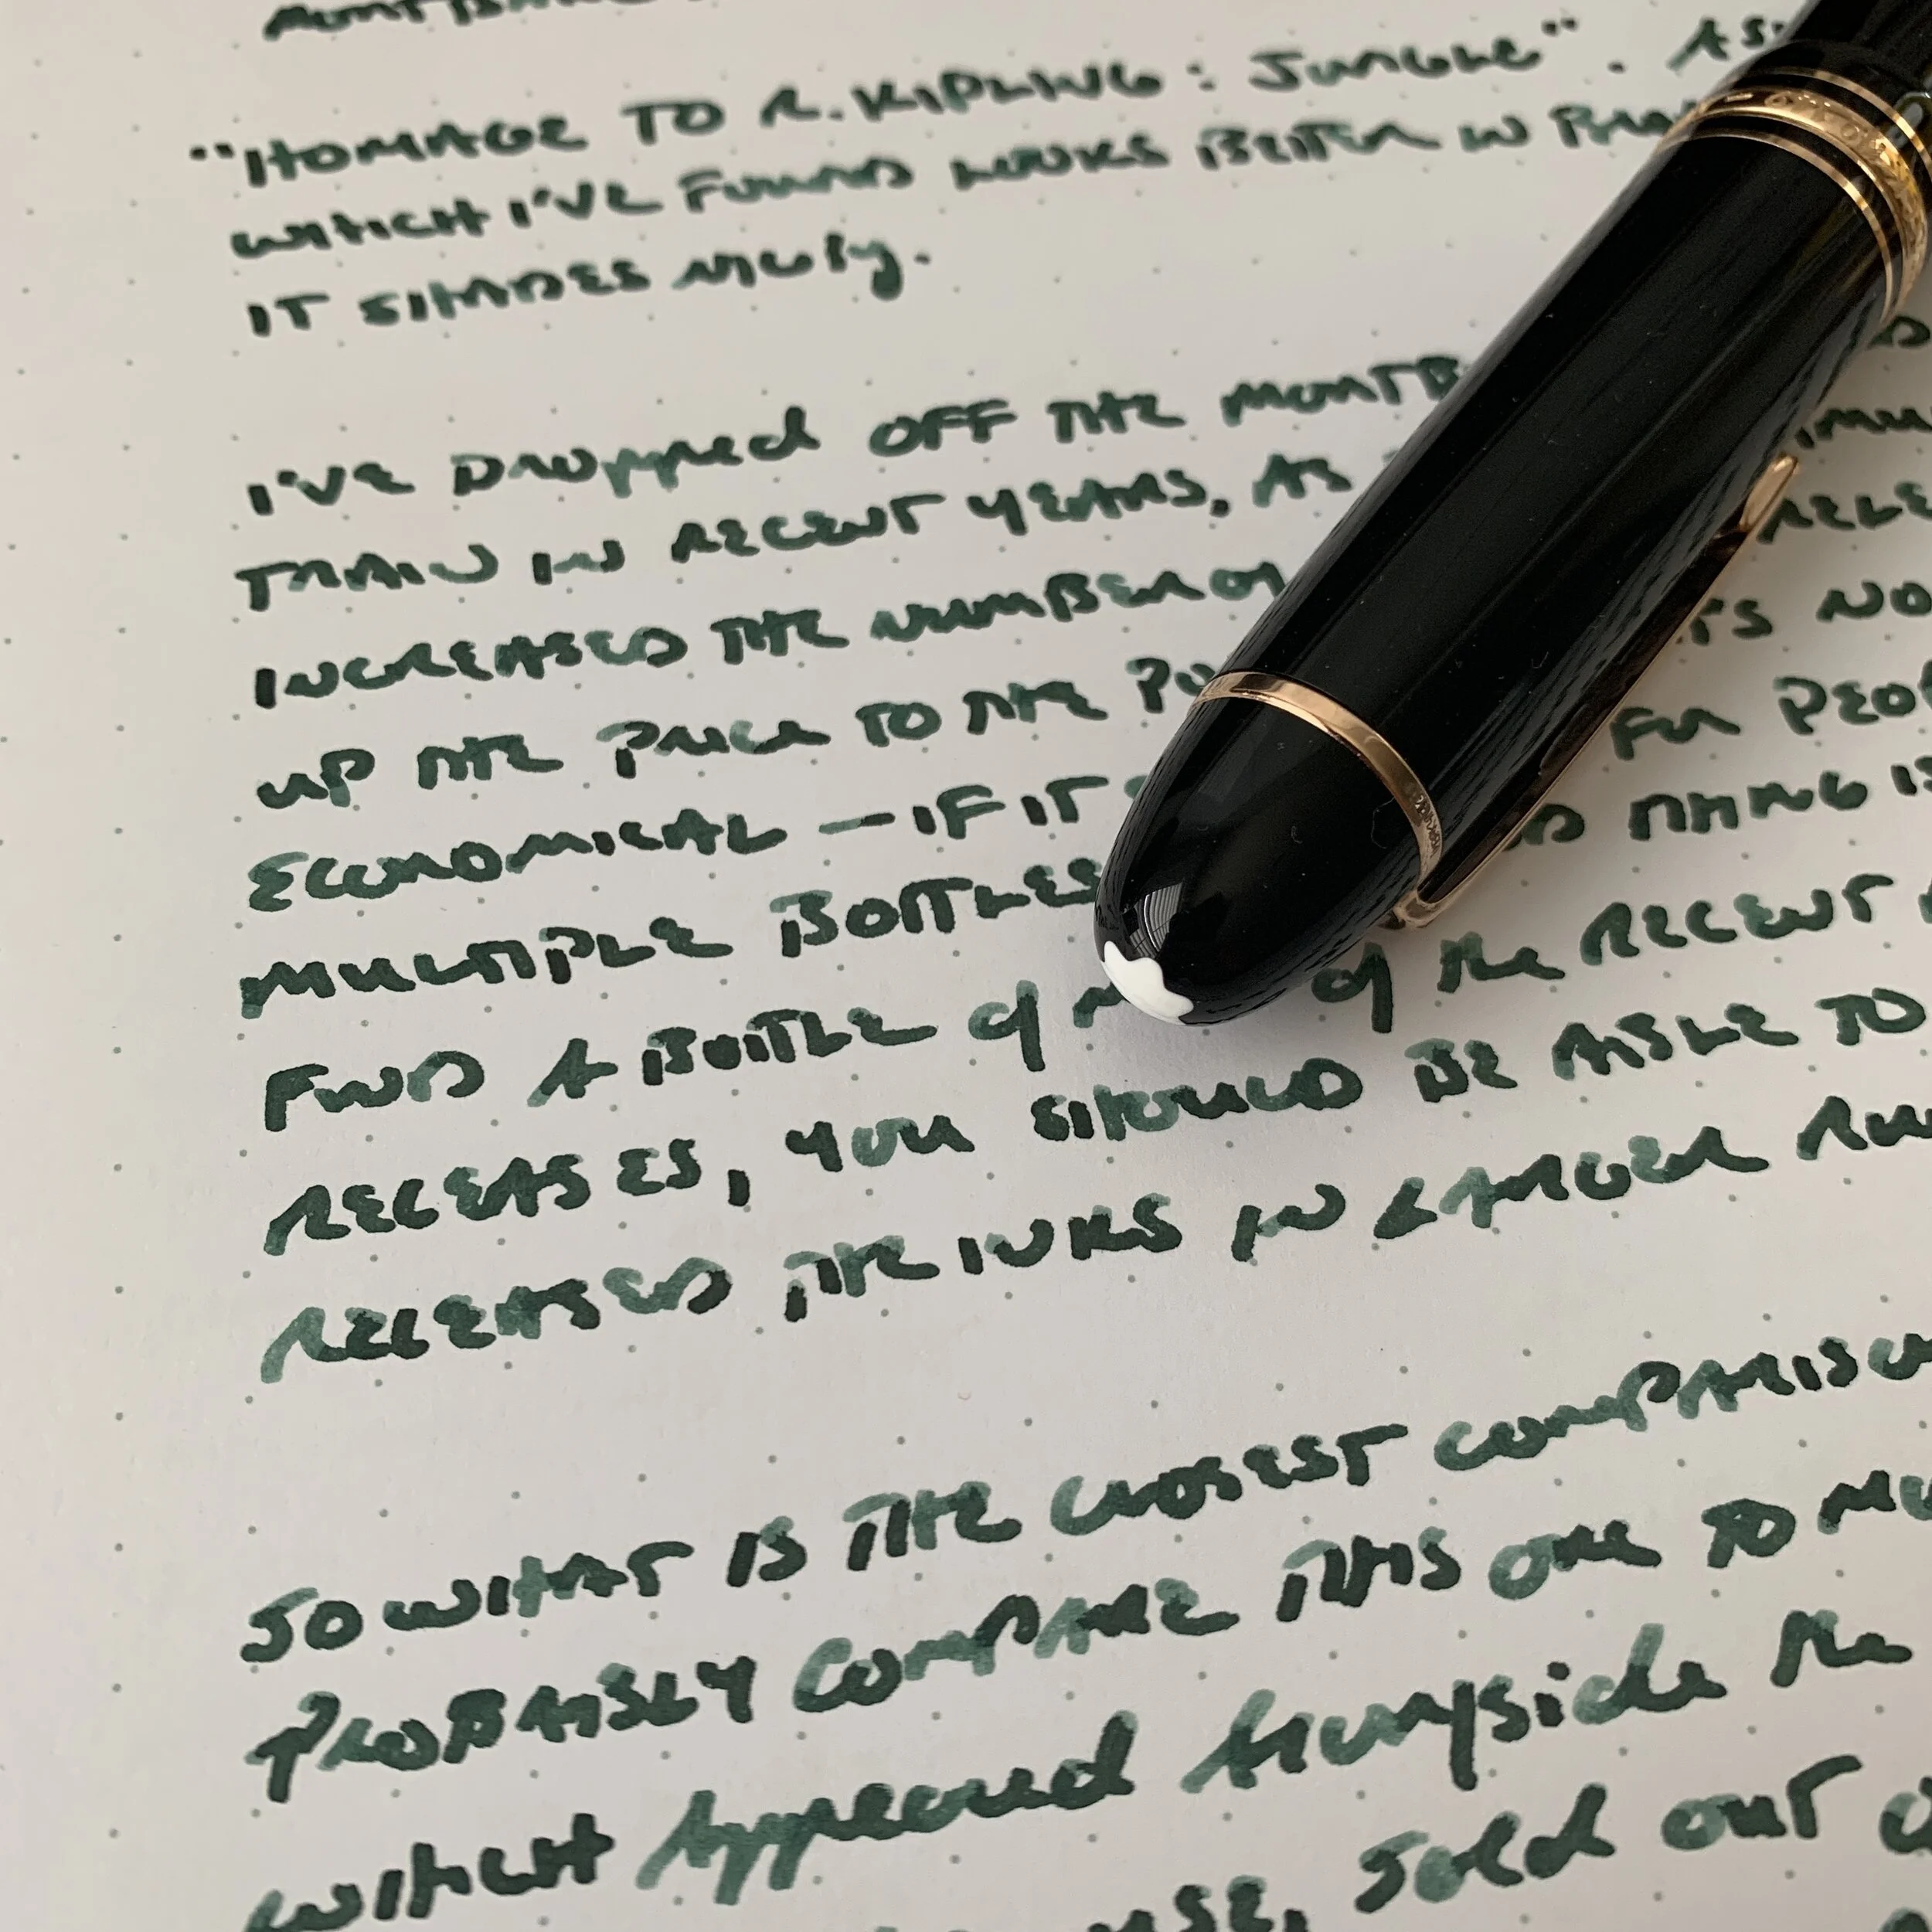 "HOMAGE TO R. KIPLING: JUNGLE". AS
WHICH I'VE FOUND LOOKS BETTER IN
IT SHADES NICELY.
I'VE DROPPED OFF THE MONTB
TRAIN IN RECENT YEARS, AS
INCREASED THE NUMBER OF RELE
UP THE PRICE TO THE PO TS NO
ECONOMICAL - IF IT FOR PEOP
MULTIPLE BOTTLES THING IS
FIND A BOTTLE of of the RECENT
RELEASES, YOU SHOULD BE ABLE TO
RELEASED THE INKS IN LARGER RUN
SO WHAT IS THE CLOSEST COMPARISON
PROBABLY COMPARE THIS ONE TO
WHICH Appeared Alongside the
SOLD OUT